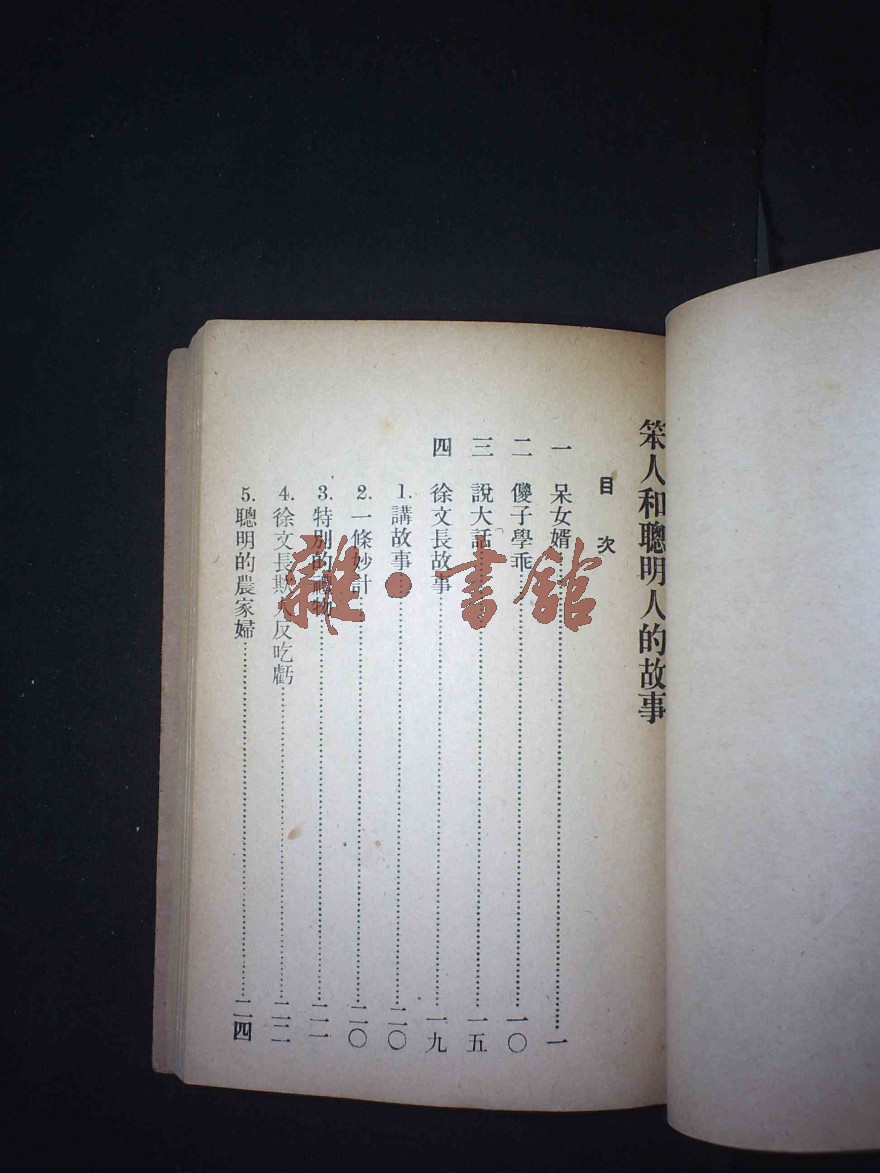 笨人和聰明人的故事
目次
一 呆女婿……一
二 儍子學乖……一〇
三 說大話……一五
四 徐文長故事……一九
1. 講故事……二〇
2. 一條妙計……二〇
3. 特別的禮物……二一
4. 徐文長欺人反吃虧……二二
5. 聰明的農家婦……二四
雜·書館